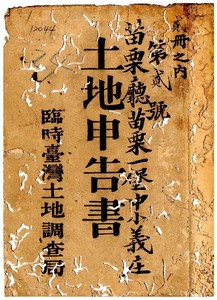 12044
冊之内
第貳號
苗栗廳苗栗一堡中小義庄
土地申告書
臨時臺灣土地調查局